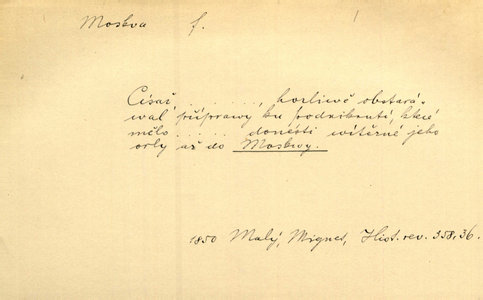 Moskva f.
Císař . . . . . . ., horliwě obstará-
wal přípravy ku podniknutí, které
mělo . . . . . donésti wítězné jeho
orly až do Moskwy.
1850 Malý, Mignet, Hist. rev. 358, 36.